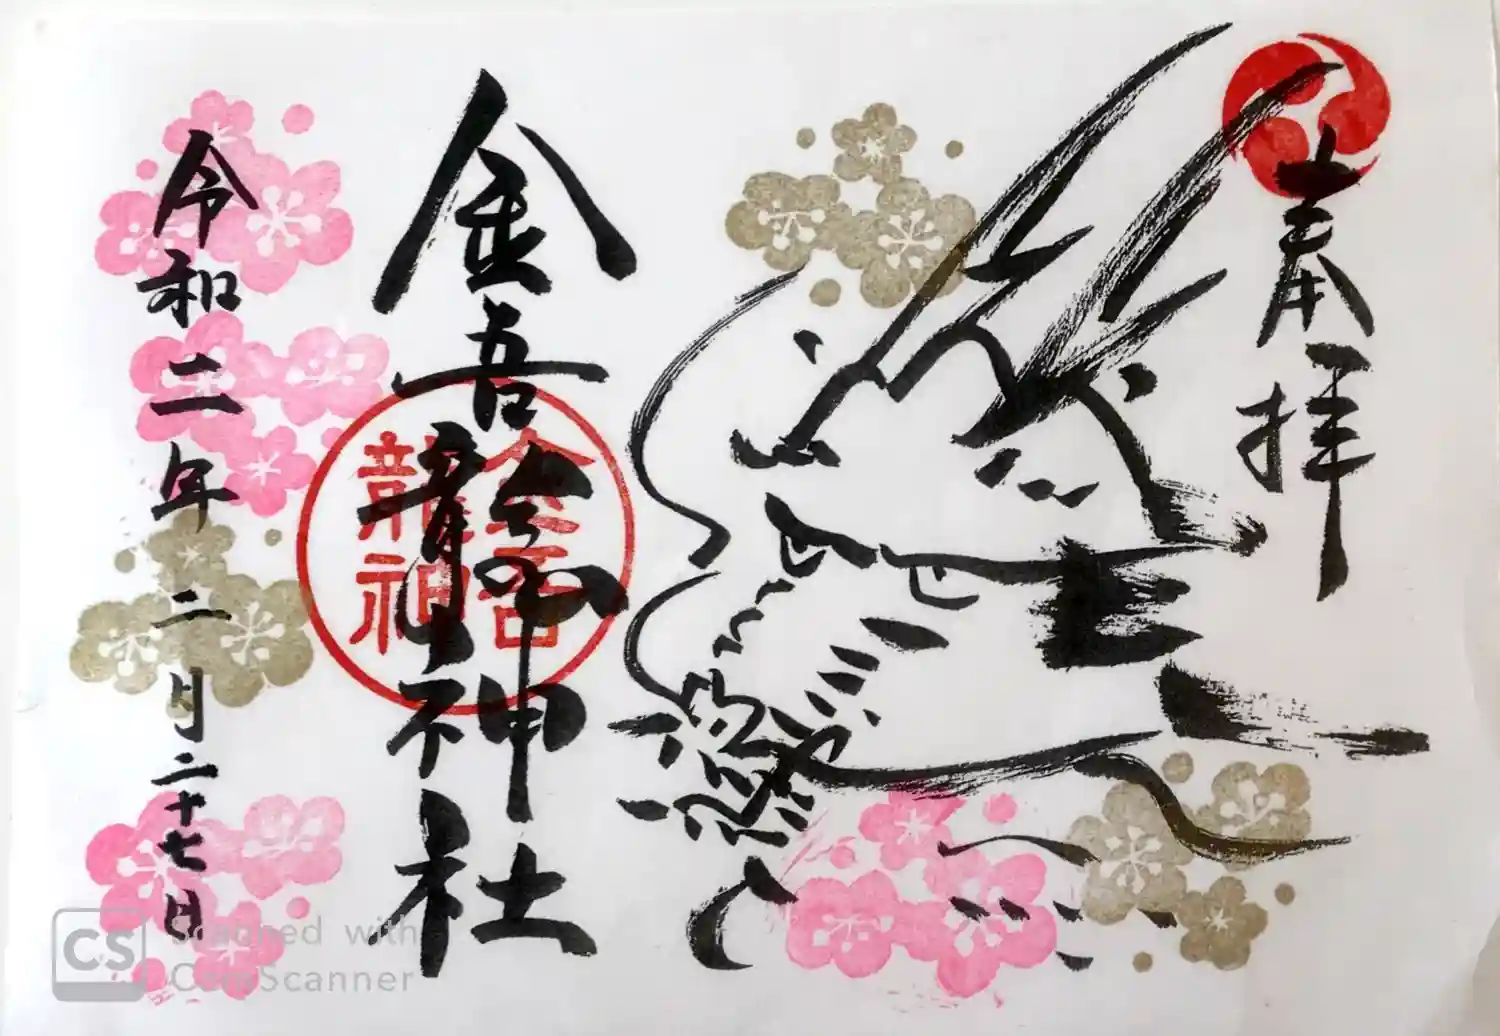 奉拝
金吾龍神社
金吾
龍神
令和二年二月二十七日
CS Scanned with
CamScanner